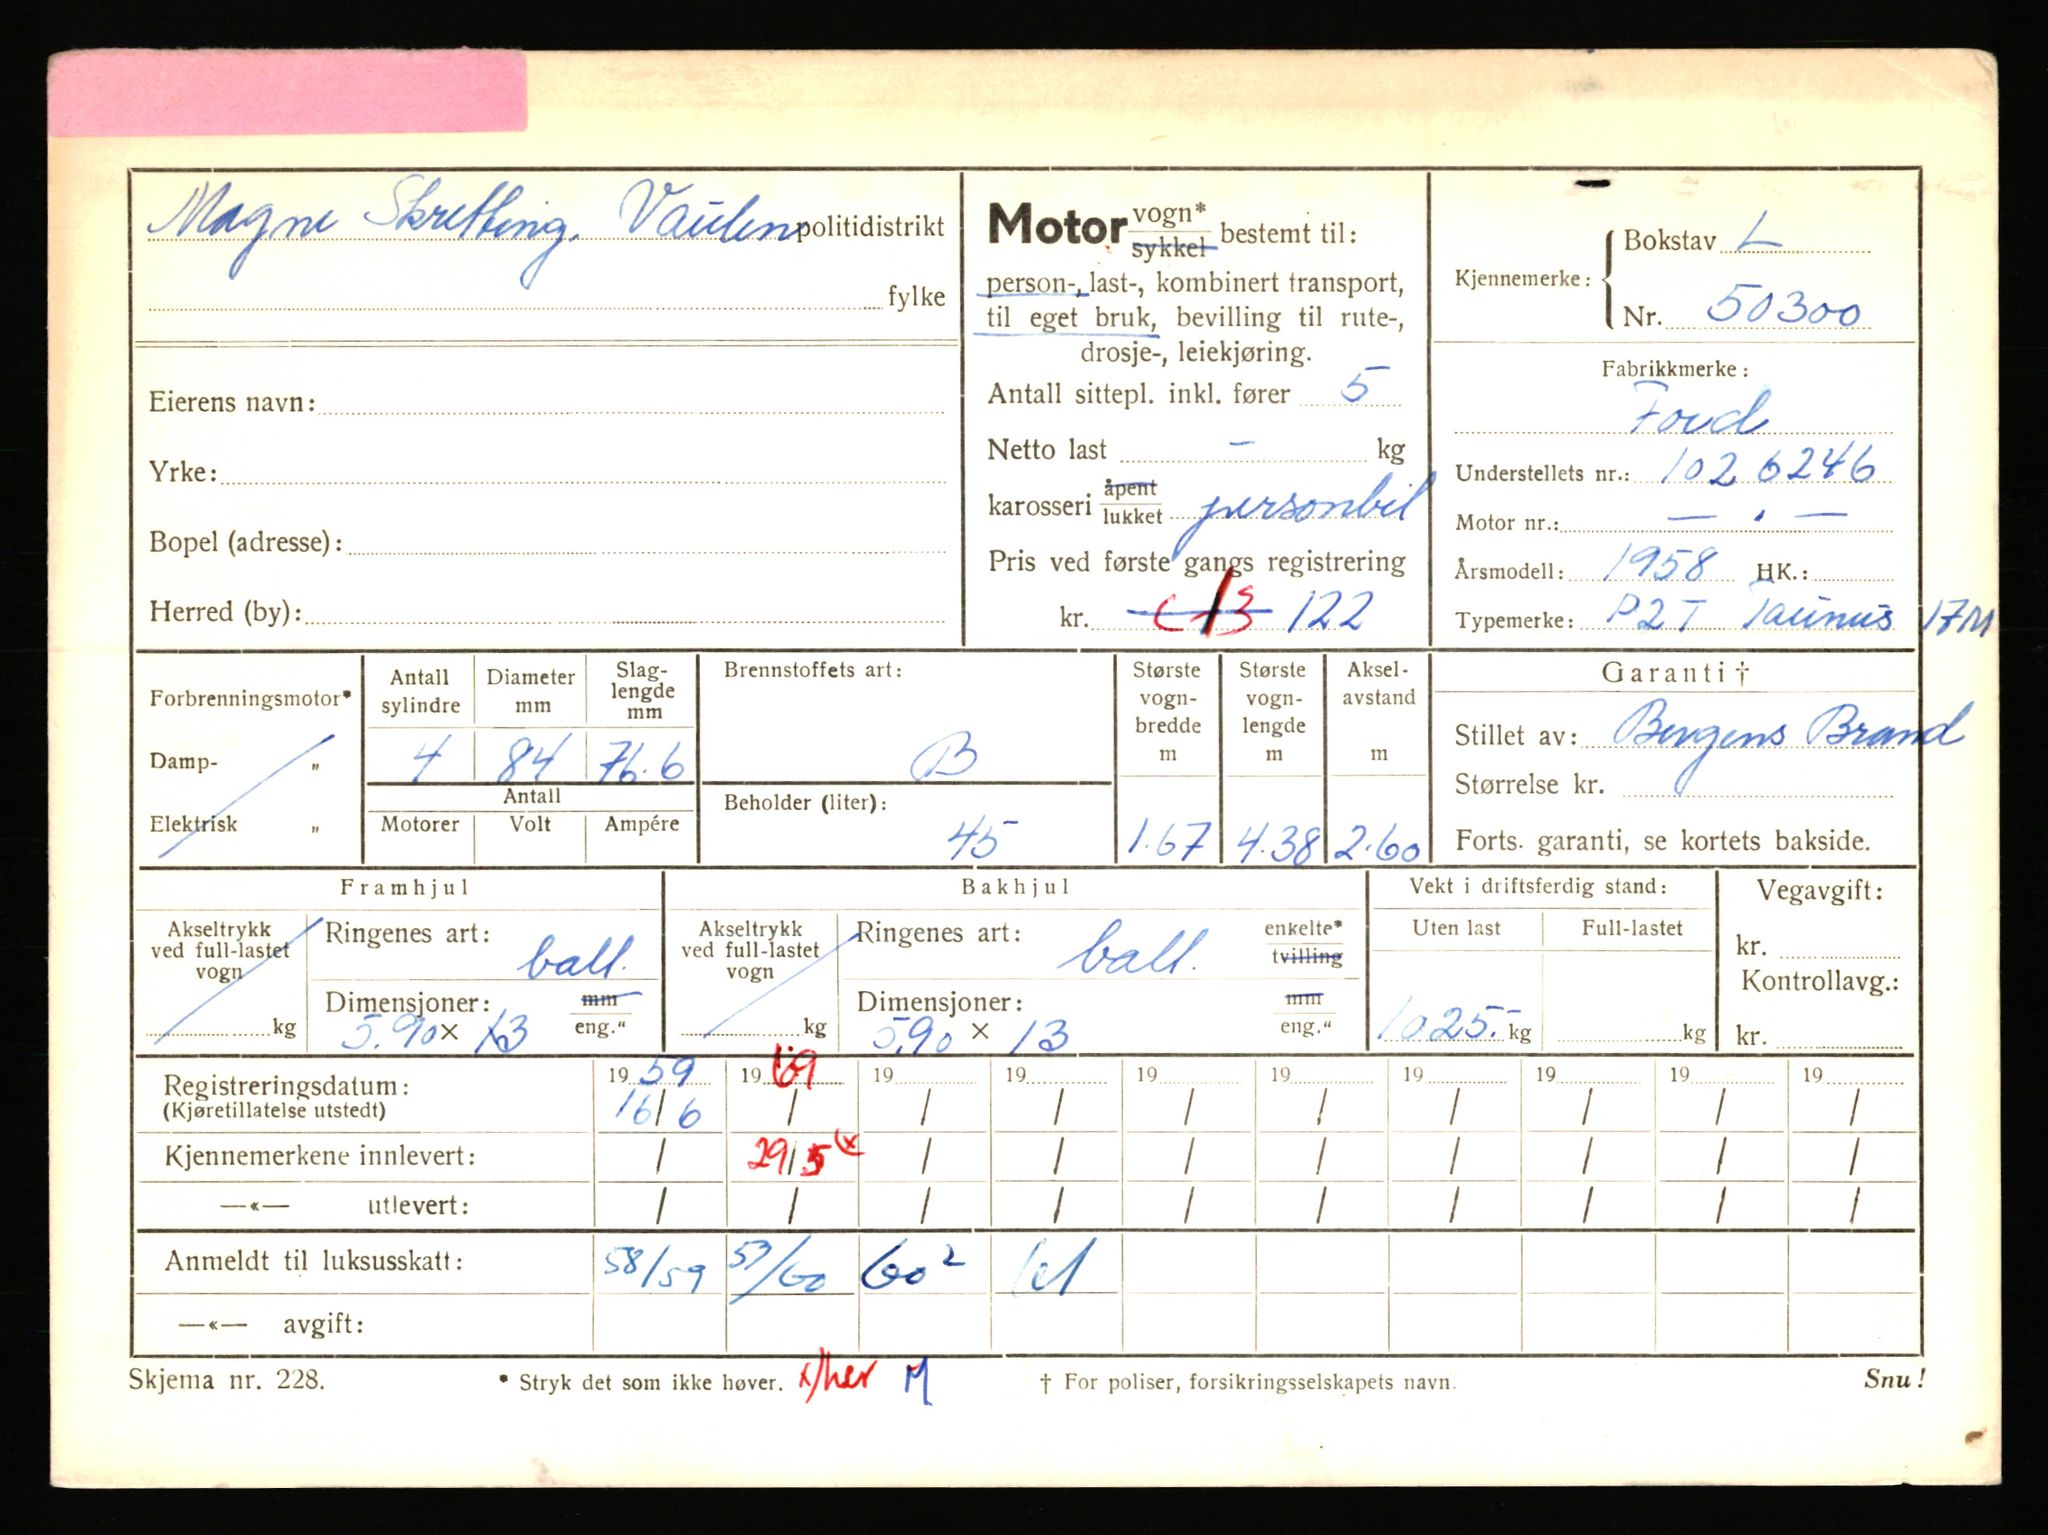 Magne Skretting. Vaulen politidistrikt
fylke
Eierens navn:
Yrke:
Bopel (adresse):
Herred (by):
Motor vogn* sykkel bestemt til:
person-, last-, kombinert transport,
til eget bruk, bevilling til rute-,
drosje-, leiekjøring.
Antall sittepl. inkl. fører 5
Netto last - kg
karosseri åpent lukket personbil
Pris ved første gangs registrering
kr. 122
Kjennemerke: Bokstav L
Nr. 50300
Fabrikkmerke:
Ford
Understellets nr.: 1026246
Motor nr.: — . —
Årsmodell: 1958 HK.:
Typemerke: P2T Taunus 17M
Forbrenningsmotor*
Damp- „
Elektrisk „
Antall sylindre
Diameter mm
Slag-lengde mm
4 84 76.6
Antall
Motorer Volt Ampére
Brennstoffets art:
B
Beholder (liter):
45
Største vogn-bredde m
1.67
Største vogn-lengde m
4.38
Aksel-avstand m
2.60
Garanti †
Stillet av: Bergens Brand
Størrelse kr.
Forts. garanti, se kortets bakside.
Framhjul
Akseltrykk ved full-lastet vogn
kg
Ringenes art:
ball.
Dimensjoner: mm
5.90 x 13 eng."
Bakhjul
Akseltrykk ved full-lastet vogn
kg
Ringenes art: enkelte*
ball. tvilling
Dimensjoner: mm
5.90 x 13 eng."
Vekt i driftsferdig stand:
Uten last Full-lastet
1025.- kg kg
Vegavgift:
kr.
Kontrollavg.:
kr.
Registreringsdatum: 1959 1969 19 19 19 19 19 19 19 19
(Kjøretillatelse utstedt) 16/6 / / / / / / / / /
Kjennemerkene innlevert: / 29/5 (x / / / / / / / /
—«— utlevert: / / / / / / / / / /
Anmeldt til luksusskatt: 58/59 59/60 60² 61
—«— avgift:
Skjema nr. 228. * Stryk det som ikke høver. x)her M † For poliser, forsikringsselskapets navn. Snu!